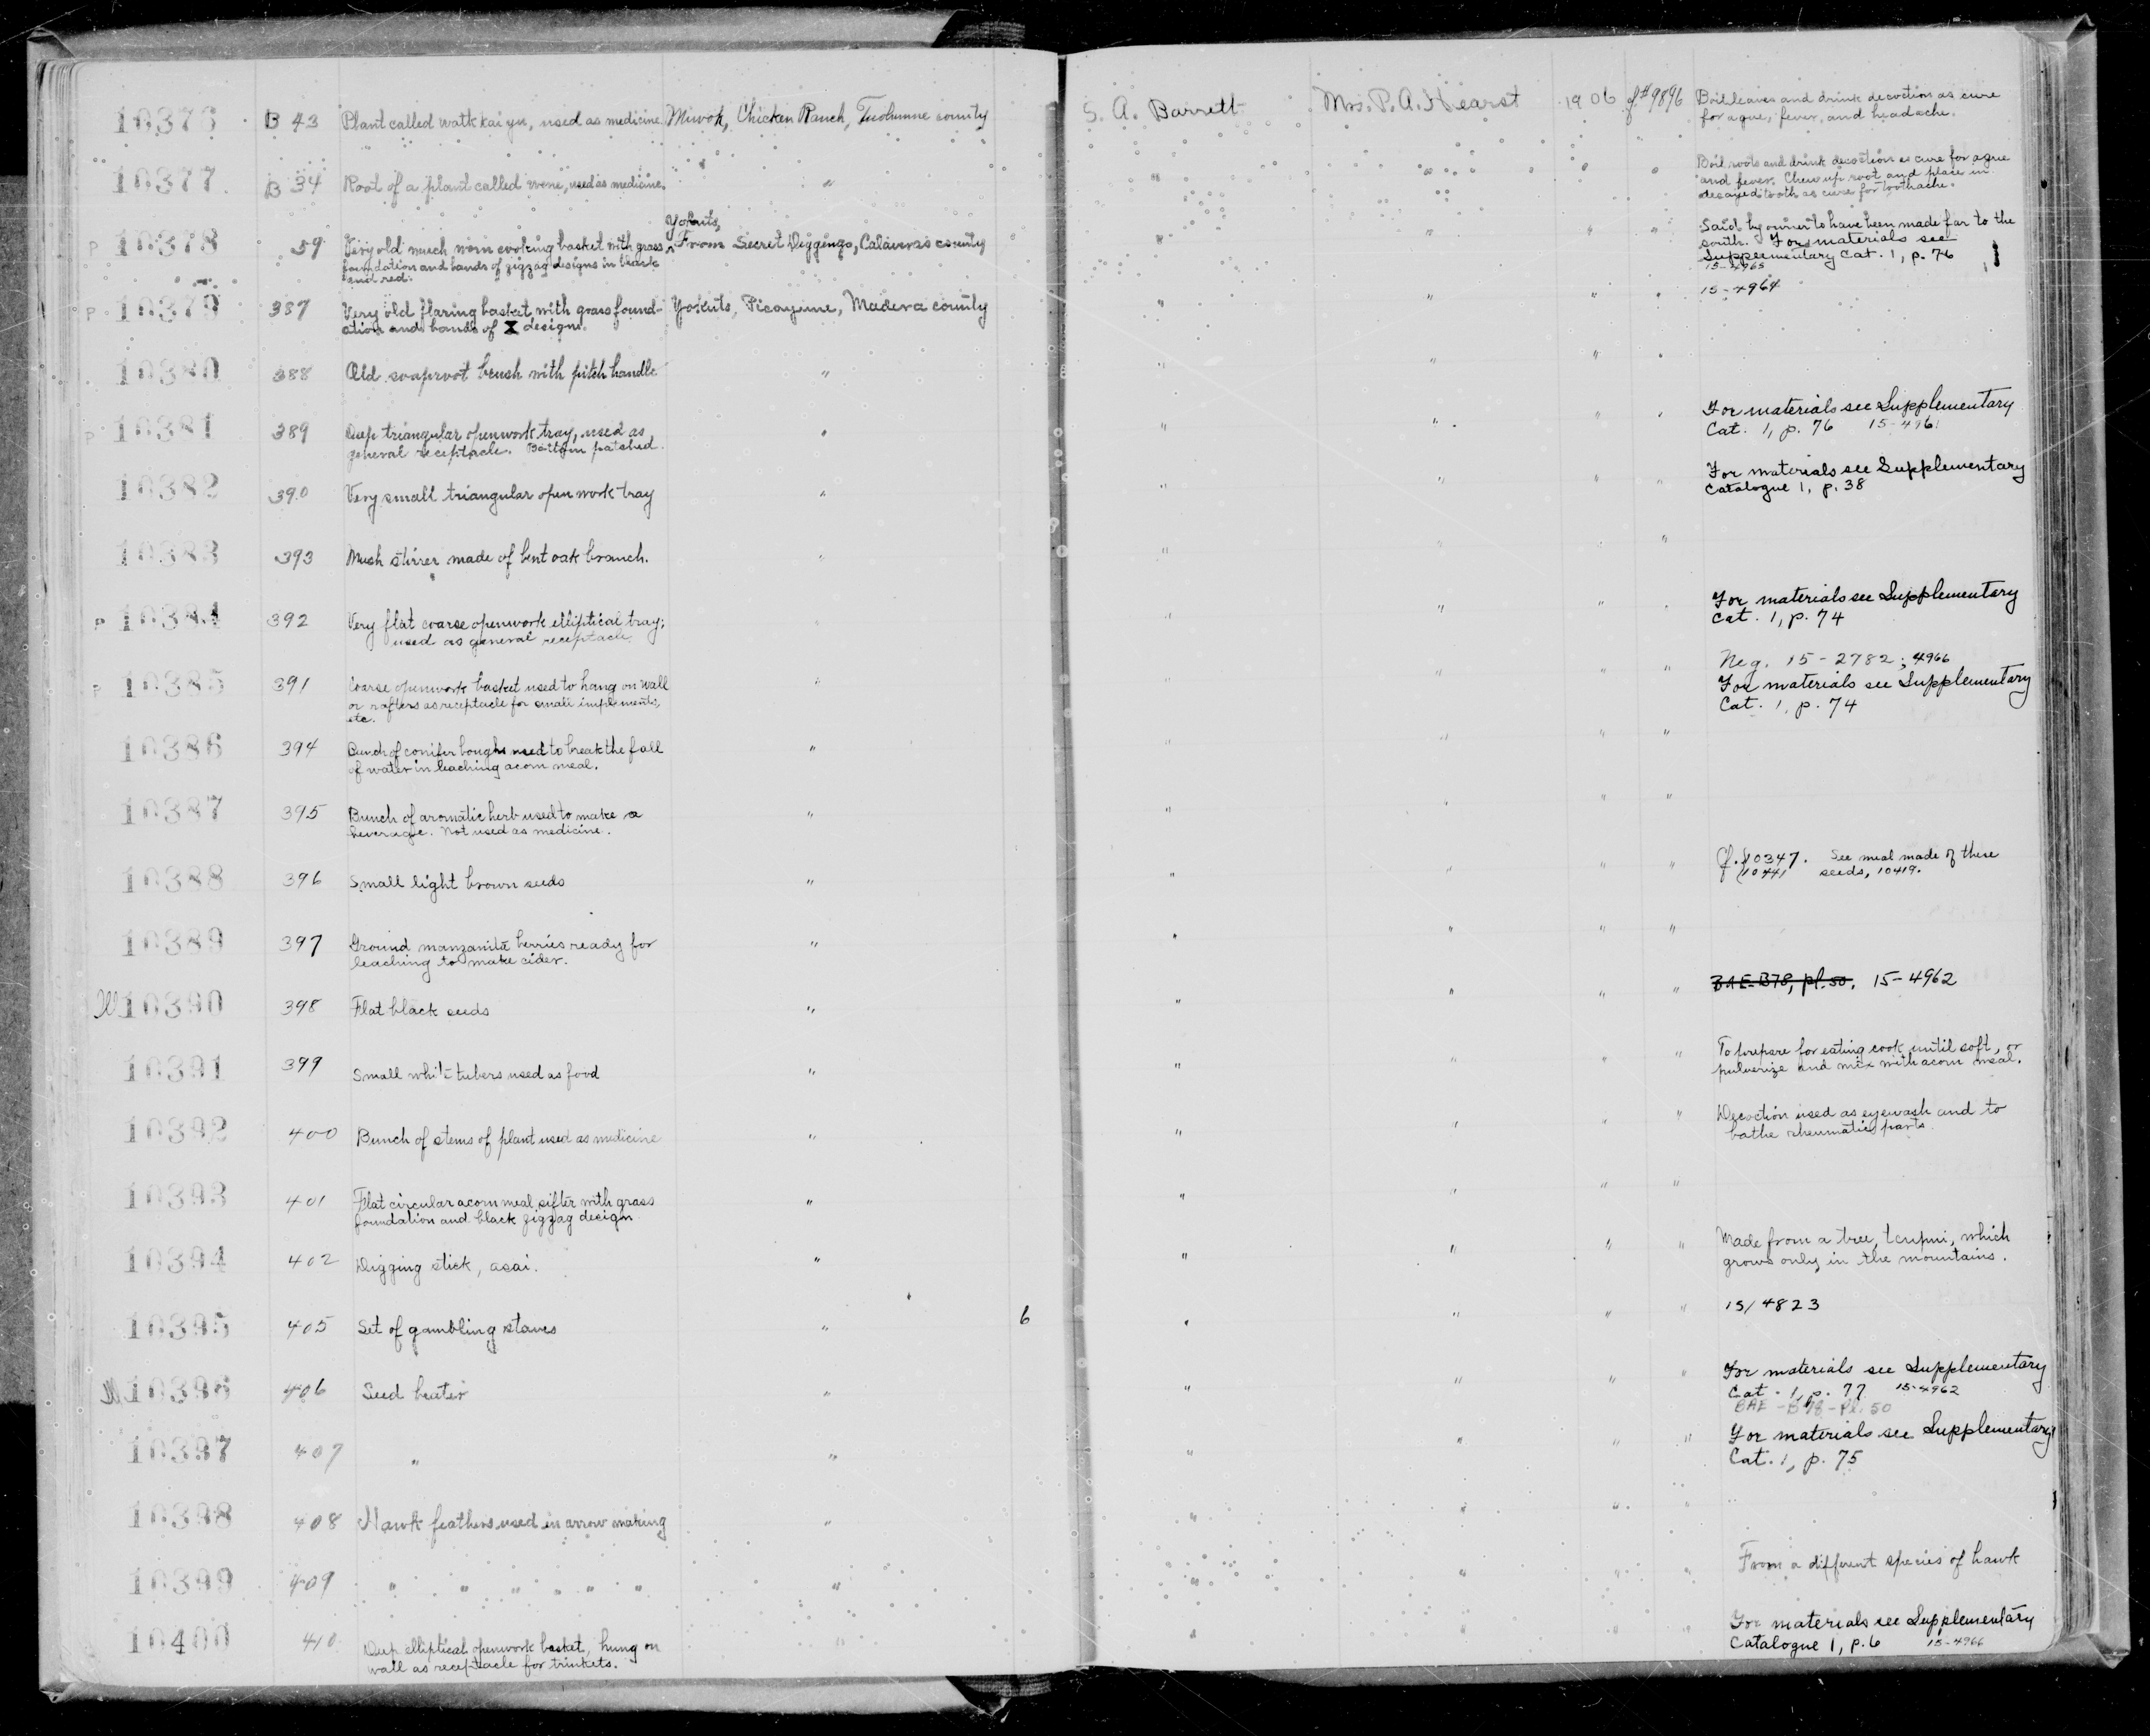 10376 B 43 Plant called watkkaiyu, used as medicine. Miwok, Chicken Ranch, Tuolumne county S. A. Barrett Mrs. P. A. Hearst 1906 cf #9896 Boil leaves and drink decoction as cure
for ague, fever, and headache.
10377 B 34 Root of a plant called wene, used as medicine. " " " " " Boil roots and drink decoction as cure for ague
and fever. Chew up root and place in
decayed tooth as cure for toothache.
Yokuts,
P 10378 59 Very old much worn cooking basket with grass ^ From Secret Diggings, Calaveras county " " " " Said by owner to have been made far to the
foundation and bands of zigzag designs in black south. For materials see
and red. Supplementary Cat. 1, p. 76
15-4965
P 10379 387 Very old flaring basket with grass found- Yokuts, Picayune, Madera county " " " " 15-4964
ation and bands of X designs.
10380 388 Old soaproot brush with pitch handle " " " " "
P 10381 389 Deep triangular openwork tray, used as " " " " " For materials see Supplementary
general receptacle. Bottom patched. Cat. 1, p. 76 15-4961
10382 390 Very small triangular open work tray " " " " " For materials see Supplementary
Catalogue 1, p. 38
10383 393 Mush stirrer made of bent oak branch. " " " " "
P 10384 392 Very flat coarse openwork elliptical tray; " " " " " For materials see Supplementary
used as general receptacle. Cat. 1, p. 74
Neg. 15-2782; 4966
P 10385 391 Coarse openwork basket used to hang on wall " " " " " For materials see Supplementary
or rafters as receptacle for small implements, Cat. 1, p. 74
etc.
10386 394 Bunch of conifer boughs used to break the fall " " " " "
of water in leaching acorn meal.
10387 395 Bunch of aromatic herb used to make a " " " " "
beverage. Not used as medicine.
10388 396 Small light brown seeds " " " " " Cf. 10347. See meal made of these
10441 seeds, 10419.
10389 397 Ground manzanita berries ready for " " " " "
leaching to make cider.
10390 398 Flat black seeds " " " " " BAE-B78, pl. 50. 15-4962
10391 399 Small white tubers used as food " " " " " To prepare for eating cook until soft, or
pulverize and mix with acorn meal.
10392 400 Bunch of stems of plant used as medicine " " " " " Decoction used as eyewash and to
bathe rheumatic parts
10393 401 Flat circular acorn meal sifter with grass " " " " "
foundation and black zigzag design.
10394 402 Digging stick, asai. " " " " " Made from a tree, tcupui, which
grows only in the mountains.
10395 405 Set of gambling staves " 6 " " " " 15/4823
10396 406 Seed beater " " " " " For materials see Supplementary
Cat. 1, p. 77 15-4962
BAE-B78-Pl. 50
10397 407 " " " " " " For materials see Supplementary
Cat. 1, p. 75
10398 408 Hawk feathers used in arrow making " " " " "
10399 409 " " " " " " " " " " " From a different species of hawk
10400 410 Deep elliptical openwork basket, hung on " " " " " For materials see Supplementary
wall as receptacle for trinkets. Catalogue 1, p. 6 15-4966